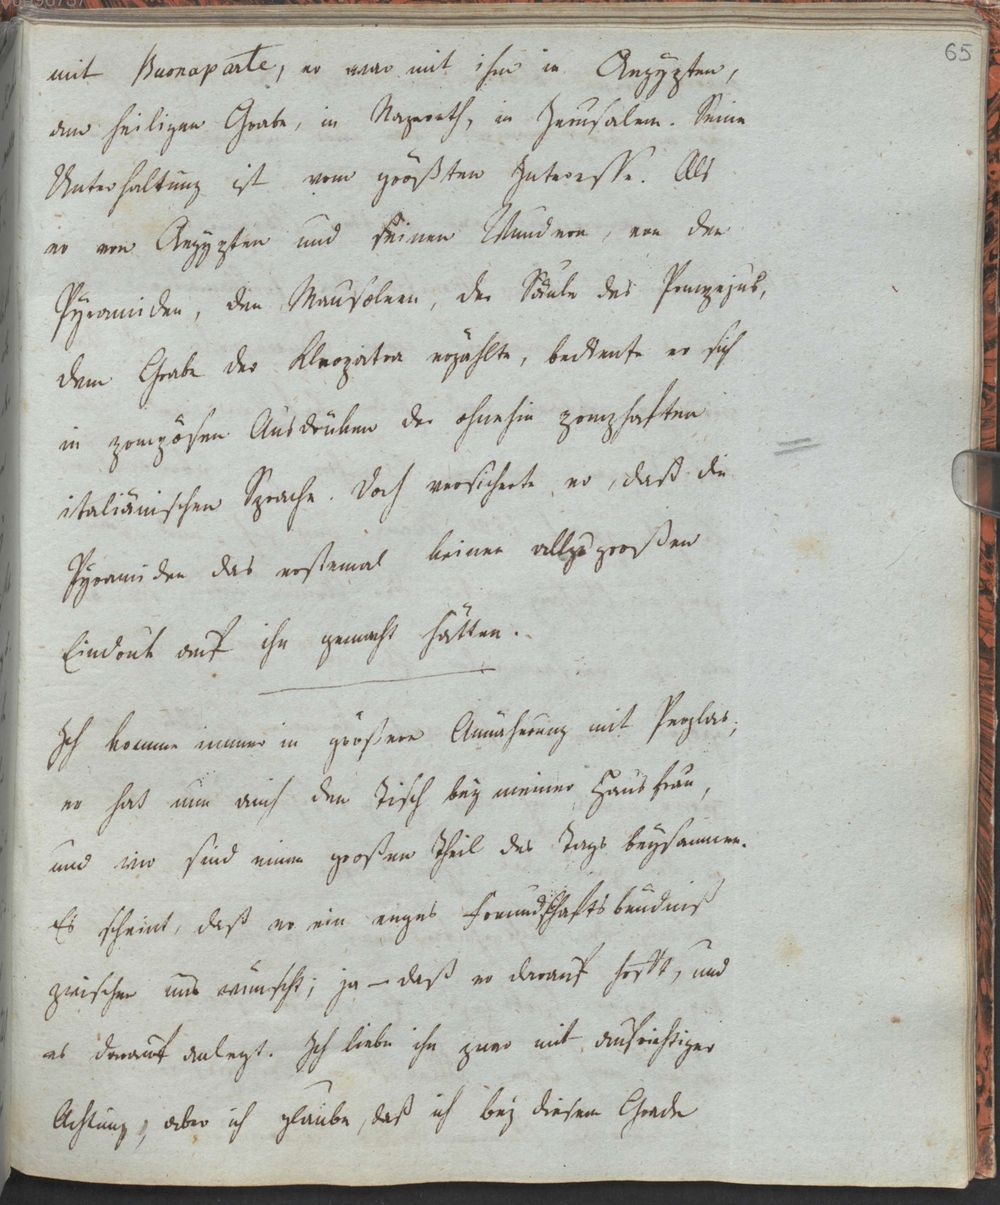 65
mit Buonaparte, er war mit ihm in Aegypten,
am heiligen Grabe, in Nazareth, in Jerusalem. Seine
Unterhaltung ist vom größten Interesse. Als
er von Aegypten und seinen Wundern, von den
Pyramiden, den Mausoleen, der Säule des Pompejus,
dem Grabe der Kleopatra erzählte, bediente er sich
in pompösen Ausdrüken der ohnehin pomphaften
italiänischen Sprache. Doch versicherte er, daß die
Pyramiden das erstemal keinen allzugroßen
Eindruk auf ihn gemacht hätten.
Ich komme immer in größere Annäherung mit Perglas;
er hat nun auch den Tisch bey meiner Hausfrau,
und wir sind einen großen Theil des Tags beysammen.
Es scheint, daß er ein enges Freundschaftsbündniß
zwischen uns wünscht; ja – daß er darauf hofft, und
es darauf anlegt. Ich liebe ihn zwar mit aufrichtiger
Achtung, aber ich glaube, daß ich bey diesem Grade